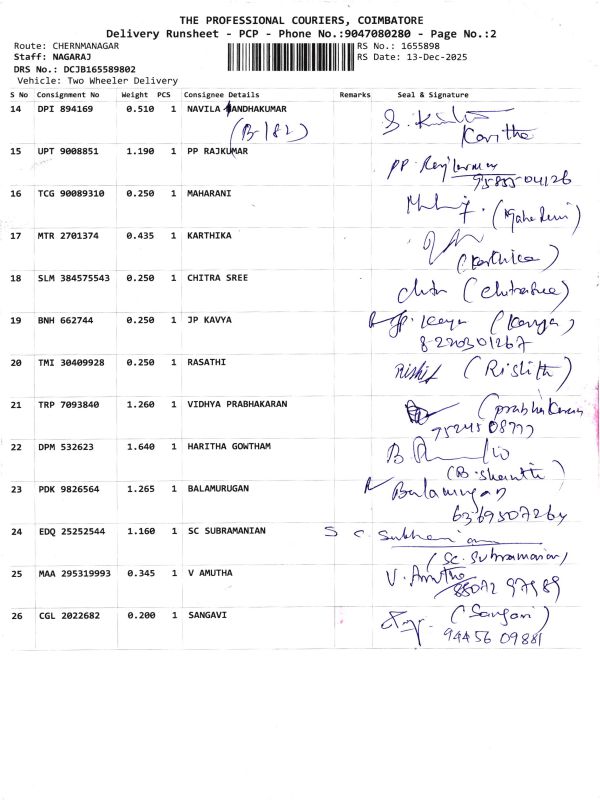 THE PROFESSIONAL COURIERS, COIMBATORE
Delivery Runsheet - PCP - Phone No.:9047080280 - Page No.:2
Route: CHERNMANAGAR RS No.: 1655898
Staff: NAGARAJ RS Date: 13-Dec-2025
DRS No.: DCJB165589802
Vehicle: Two Wheeler Delivery
S No Consignment No Weight PCS Consignee Details Remarks Seal & Signature
14 DPI 894169 0.510 1 NAVILA ANDHAKUMAR
(B-182) Kavitha
15 UPT 9008851 1.190 1 PP RAJKUMAR PP. Rajkumar
95855 04126
16 TCG 90089310 0.250 1 MAHARANI
17 MTR 2701374 0.435 1 KARTHIKA
(Karthica)
18 SLM 384575543 0.250 1 CHITRA SREE (Chitrasree)
19 BNH 662744 0.250 1 JP KAVYA JP. Kavya (Kavya)
8220301267
20 TMI 30409928 0.250 1 RASATHI
21 TRP 7093840 1.260 1 VIDHYA PRABHAKARAN
22 DPM 532623 1.640 1 HARITHA GOWTHAM
(B. Shanthi)
23 PDK 9826564 1.265 1 BALAMURUGAN Balamurugan
6369507264
24 EDQ 25252544 1.160 1 SC SUBRAMANIAN S C.
(SC. Subramanian)
25 MAA 295319993 0.345 1 V AMUTHA V. Amutha
88072 97989
26 CGL 2022682 0.200 1 SANGAVI (Sangavi)
94456 09881